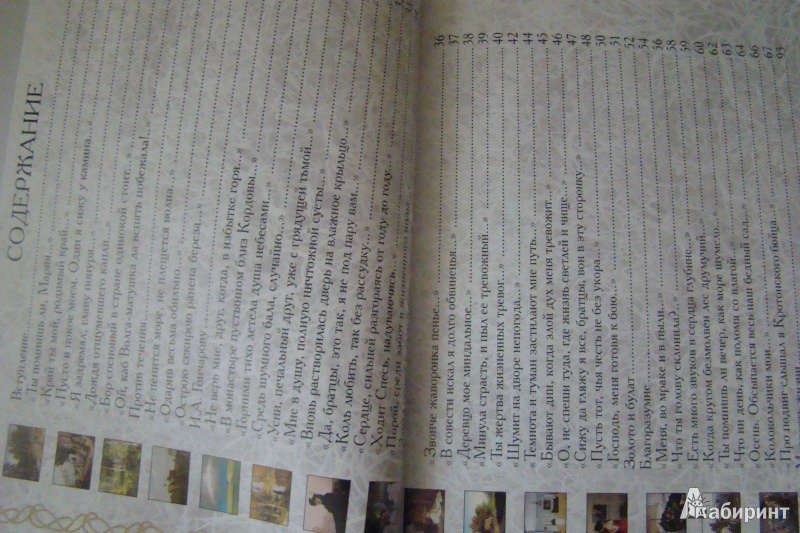 СОДЕРЖАНИЕ
Вступление
«Ты помнишь ли, Мария...»
«Край ты мой, родимый край...»
«Пусто в покое моем. Один я сижу у камина...»
«Я задремал, главу понуря...»
«Дождя отшумевшего капли...»
«Бор сосновый в стране одинокой стоит...»
«Ой, каб Волга-матушка да вспять побежала!...»
Против течения
«Не пенится море, не плещется волна...»
«Одарив весьма обильно...»
«Острою секирою ранена береза...»
И.А. Гончарову
«Не верь мне, друг, когда, в избытке горя...»
«В монастыре пустынном близ Кордовы...»
«Горними тихо летела душа небесами...»
«Средь шумного бала, случайно...»
«Усни, печальный друг, уже с грядущей тьмой...»
«Мне в душу, полную ничтожной суеты...»
«Вновь растворилась дверь на влажное крыльцо...»
«Да, братцы, это так, я не под пару вам...»
«Коль любить, так без рассудку...»
«Сердце, сильней разгораясь от году до году...»
«Ходит Спесь, надуваючись...»
«Порой, среди забот и
«Звонче жаворонка пенье...» 36
«В совести искал я долго обвиненья...» 37
«Деревцо мое миндальное...» 38
«Минула страсть, и пыл ее тревожный...» 39
«Ты жертва жизненных тревог...» 40
«Шумит на дворе непогода...» 42
«Темнота и туман застилают мне путь...» 44
«Бывают дни, когда злой дух меня тревожит...» 45
«О, не спеши туда, где жизнь светлей и чище...» 46
«Сижу да гляжу я все, братцы, вон в эту сторонку...» 47
«Пусть тот, чья честь не без укора...» 48
«Господь, меня готовя к бою...» 50
Золото и булат 51
Благоразумие 52
«Меня, во мраке и в пыли...» 54
«Что ты голову склонила?...» 56
«Есть много звуков в сердца глубине...» 58
«Когда кругом безмолвен лес дремучий...» 59
«Ты помнишь ли вечер, как море шумело... 60
«Что ни день, как поломя со влагой... 62
«Осень. Обсыпается весь наш бедный сад... 63
«Колокольчики мои...» 64
Про подвиг слышал я Кротонского бойца 66
67
93
Лабиринт